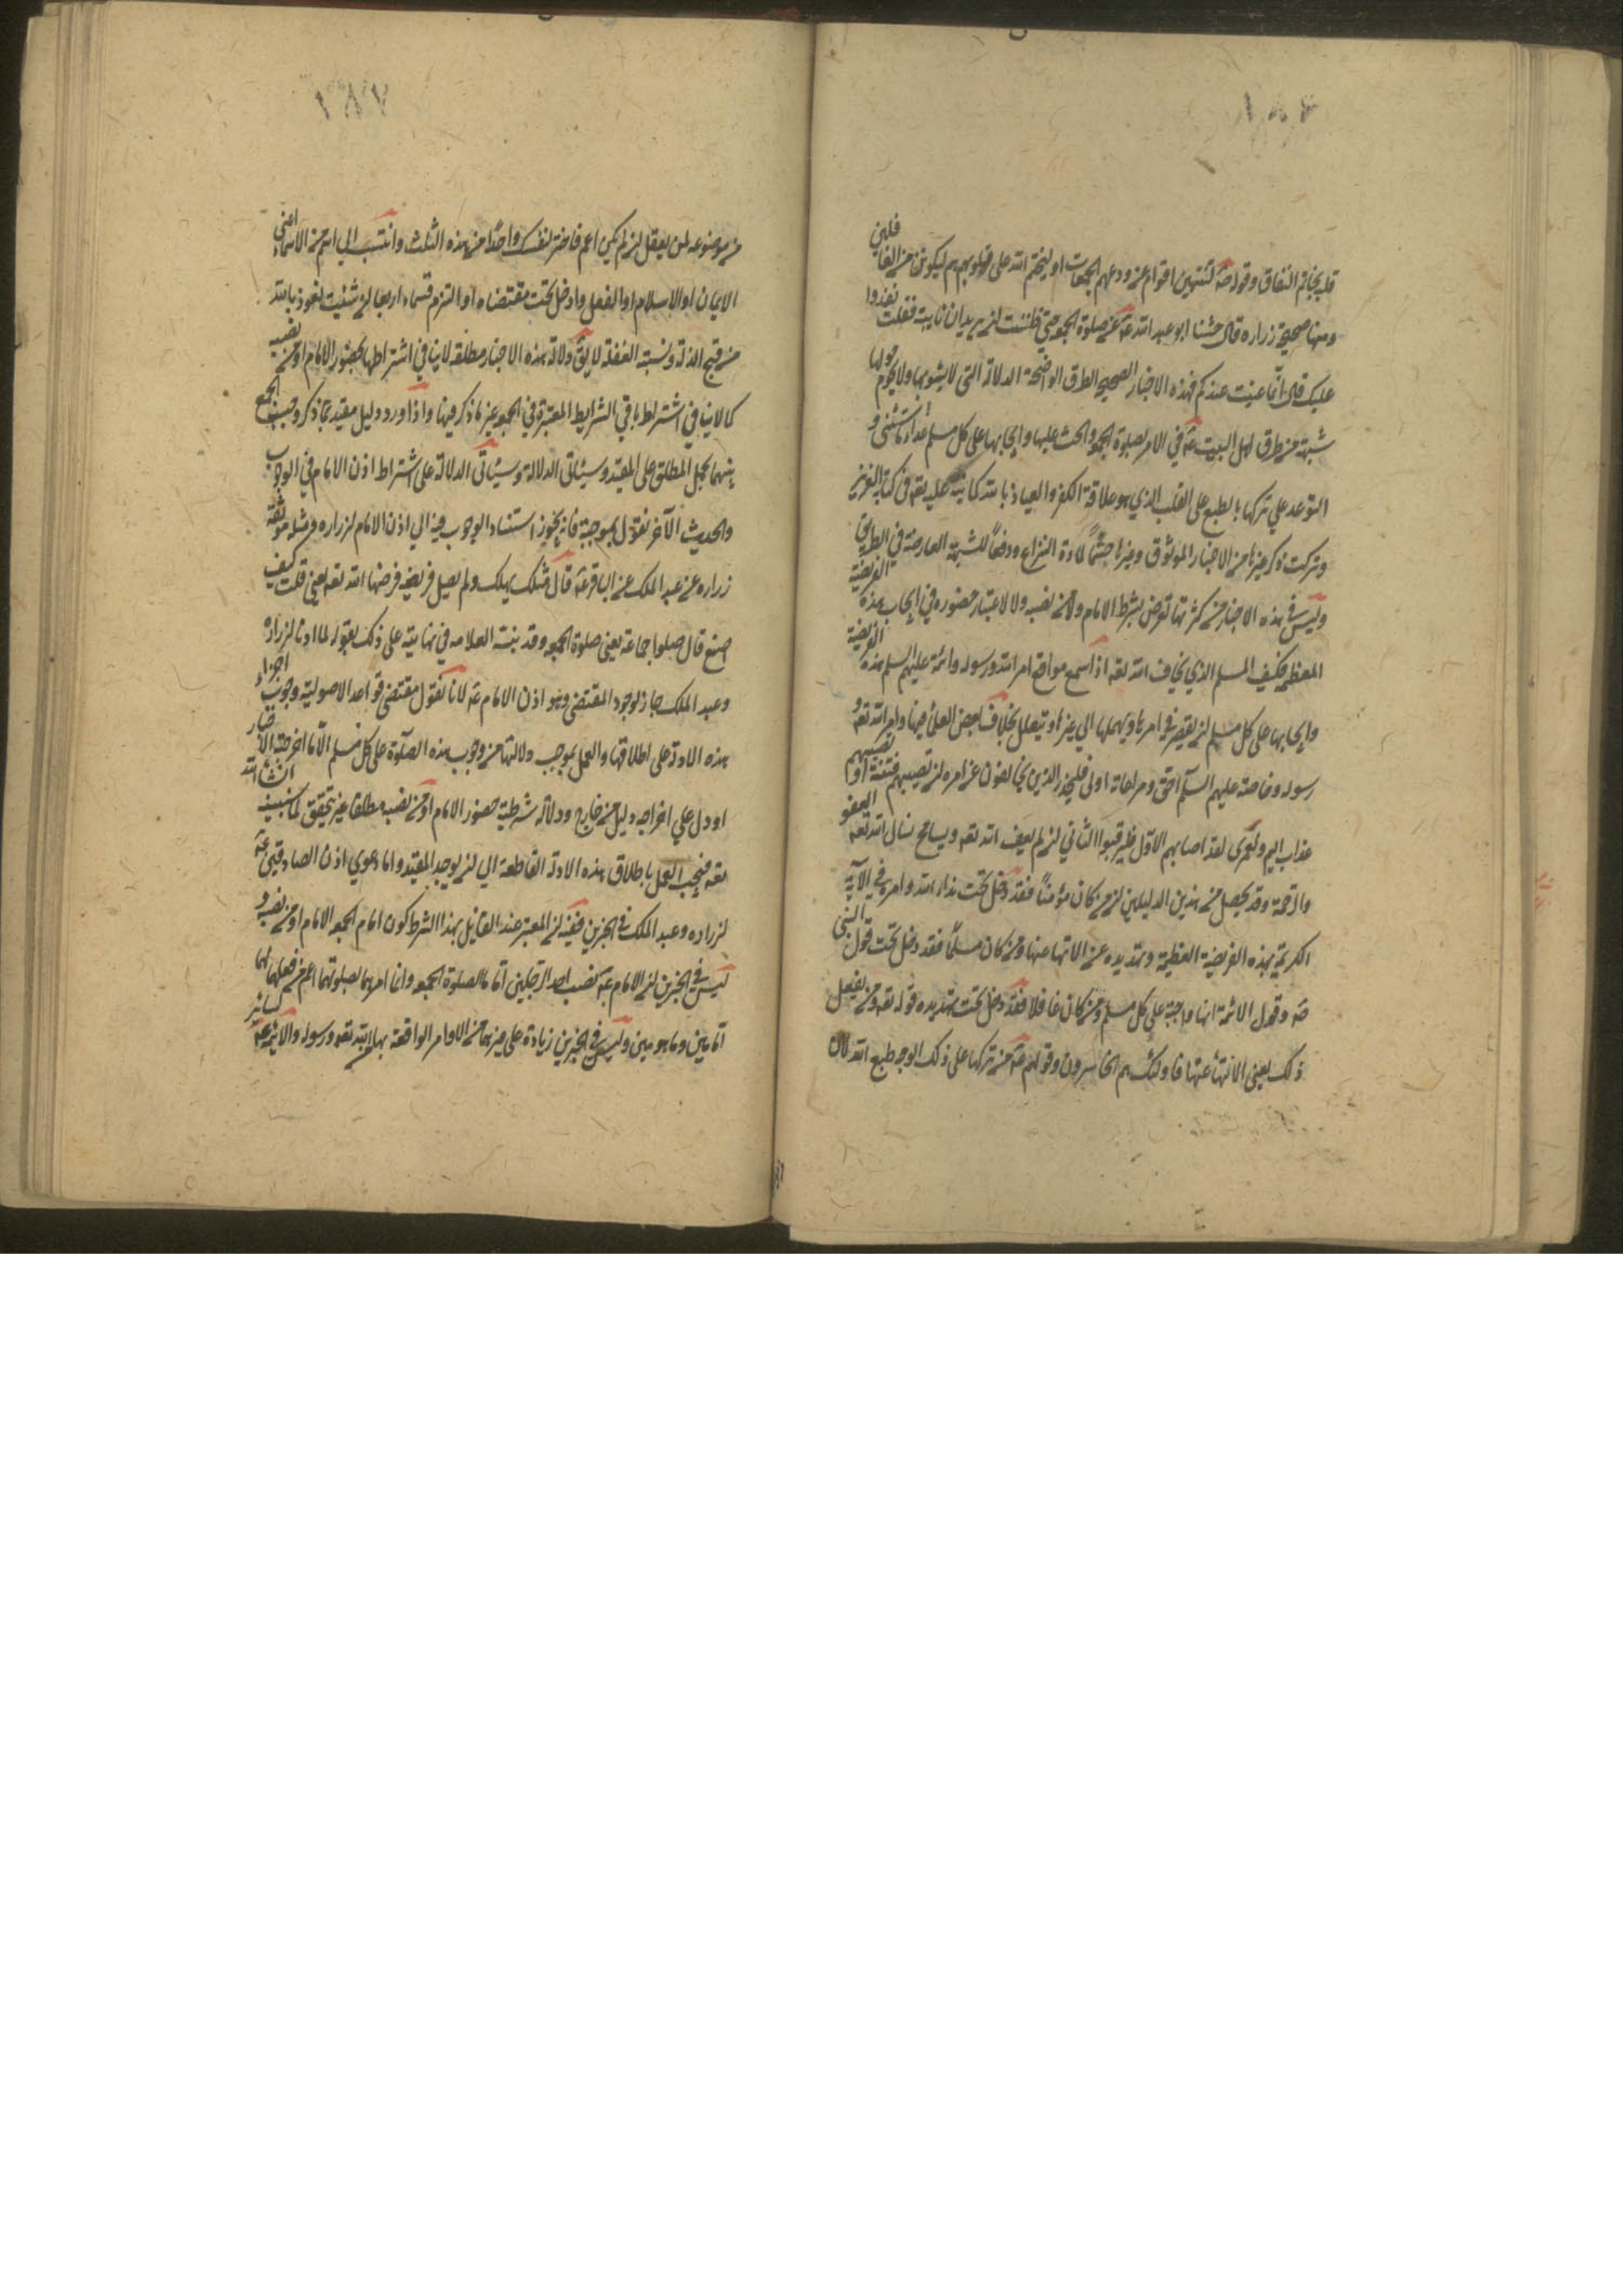 قلبه بخاتم النفاق وقوله صه لينتهين اقوام عن ودعهم الجمعات او ليختمن الله على قلوبهم ثم ليكونن من الغافلين
ومنها صحيحة زراره قال حثنا ابو عبد الله عه عن صلوة الجمعه حتى ظننت انه يريد ان ناتيه فقلت نغدوا
عليك قال انما عنيت عندكم فهذه الاخبار الصحيحة الطرق الواضحة الدلالة التي لا يشوبها ولا يحوم حولها
شبهة من طرق اهل البيت عه في الامر بصلوة الجمعه والحث عليها وايجابها على كل مسلم عدا ما استثنى و
التوعد على تركها بالطبع على القلب الذي هو علامة الكفر والعياذ بالله كما نبه عليه تعه في كتابه العزيز
وتركت ذكر غيرها من الاخبار الموثوق وغيرها حسما لمادة النزاع ودفعا للشبهة العارضة في الطريق
وليس في هذه الاخبار مع كثرتها تعرض بشرط الامام ولا من نصبه ولا لاعتبار حضوره في ايجاب هذه الفريضة
المعظمه فكيف المسلم الذي يخاف الله تعه اذا سمع مواقع امر الله ورسوله وائمته عليهم السلم بهذه الفريضة
وايجابها على كل مسلم ان يقصر في امرها ويهملها الى غيرها ويتعلل بخلاف بعض العلماء فيها وامر الله تعه و
رسوله وخاصته عليهم السلم احق ومراعاته اولى فليحذر الذين يخالفون عن امره ان تصيبهم فتنة او يصيبهم
عذاب اليم ولعمرى لقد اصابهم الاول فليرتقبوا الثاني ان لم يعف الله تعه ويسامح نسال الله تعه العفو
والرحمة وقد يحصل من هذين الدليلين ان من كان مؤمنا فقد دخل تحت نداء الله وامره في الآية
الكريمة بهذه الفريضة العظيمة وتهديده عن الالتها عنها ومن كان مسلما فقد دخل تحت قول النبي
صه وقول الائمة انها واجبة على كل مسلم ومن كان غافلا فقد دخل تحت تهديده قوله تعه ومن يفعل
ذلك يعني الالتهاء عنها فاولئك هم الخاسرون وقولهم عه من تركها على ذلك الوجه طبع الله لان
من موضوعه لمن يعقل ان لم يكن اعم فاختر لنفسك واحدا من هذه الثلث وانتسب الى اسم من الاسماء اعني
الايمان او الاسلام او الغفل وادخل تحت مقتضاه او التزم قسما رابعا ان شئت نعوذ بالله
من قبح الذلة ونسبة الغفلة لا يق دلالة هذه الاخبار مطلقه لا ينافي اشتراطها بحضور الامام او من نصبه
كما لا ينافي اشتراط باقي الشرايط المعتبرة في الجمعه غير ما ذكر فيها واذا ورد دليل مقيد بما ذكر وجب الجمع
بينهما بحمل المطلق على المقيد وسيئاتى الدلالة وسيئاتى الدلالة على اشتراط اذن الامام في الوجوب
والحديث الآخر نقول بموجبه فانه يجوز استناد الوجوب فيه الى اذن الامام لزراره ومثله موثقة
زراره عن عبد الملك عن ابا قرعه قال مثلك يهلك ولم يصل فريضه فرضها الله تعه يعنى قلت كيف
اصنع قال صلوا جماعة يعنى صلوة الجمعه وقد نبه العلامه في نهايته على ذلك بقوله لما اذنا لزراره
وعبد الملك جاز لوجود المقتضى وهو اذن الامام عه لانا نقول مقتضى قواعد الاصولية وجوب اجراء
هذه الادلة على اطلاقها والعمل بموجب دلالتها من وجوب هذه الصلوة على كل مسلم الا ما اخرجته الاخبار
او دل على اخراجه دليل من خارج ودلالة شرطية حضور الامام او من نصبه مطلقا غير متحقق لما نبينه انشا الله
تعه فيجب العمل باطلاق هذه الادلة القاطعة الى ان يوجد المقيد واما دعوي اذن الصادقين عه
لزراره وعبد الملك في الخبرين ففيه ان المعتبر عند القايل بهذا الشرط كون امام الجمعه الامام او من نصبه و
ليس في الخبرين ان الامام عه نصب احد الرجلين اماما لصلوة الجمعه وانما امرهما بصلوتهما اعم من فعلهما لها
امامين ومامومين وليس في الخبرين زيادة على غيرهما من الاوامر الواقعة بها الله تعه ورسوله والائمه عه لسائر